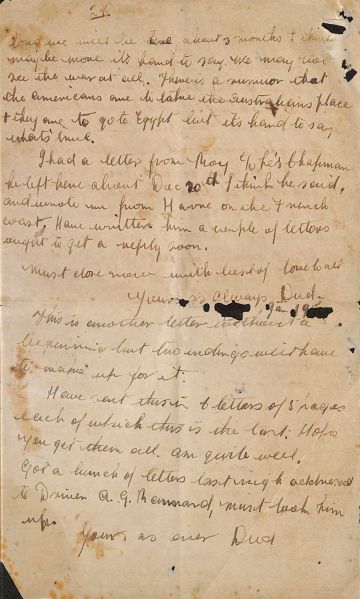 long we will be here about 3 months I think
maybe more it's hard to say. We may not
see the war at all. There is a rumour that
the americans are to take the Australians place
& they are to go to Egypt but it's hard to say
what's true.
I had a letter from Roy Chapman
he left here about Dec 20th I think he said,
and wrote me from Havre on the French
coast. Have written him a couple of letters
ought to get a reply soon.
Must close now with best of love to all
Yours as always Dud.
This is another letter without a
beginning but two endings will have
to make up for it.
Have sent this in 6 letters of 5 pages
each of which this is the last. Hope
you get them all. am quite well.
Got a bunch of letters last nigh addressed
to Driver A. G. must look him
up.
Yours as ever Dud